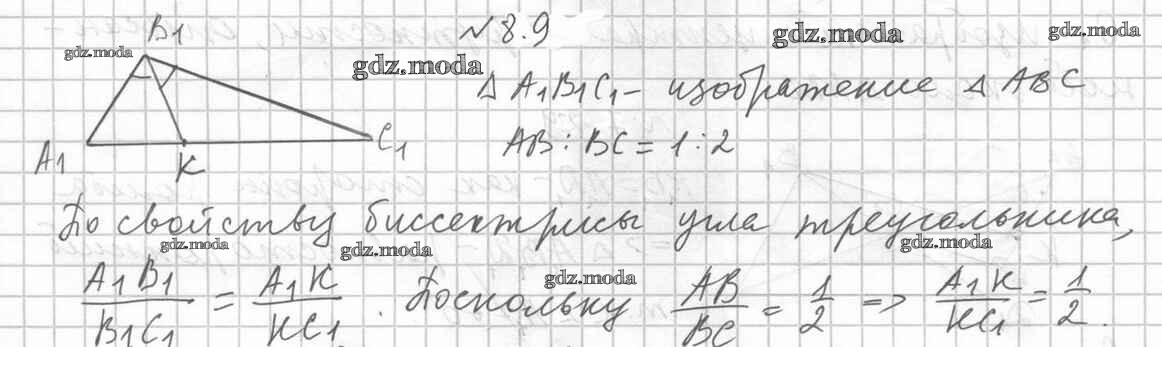 № 8.9
B₁
A₁
K
C₁
gdz.moda
gdz.moda
gdz.moda
gdz.moda
△ A₁B₁C₁ – изображение △ ABC
AB : BC = 1 : 2
По свойству биссектрисы угла треугольника,
gdz.moda
gdz.moda
gdz.moda
gdz.moda
A₁B₁/B₁C₁ = A₁K/KC₁. Поскольку AB/BC = 1/2 => A₁K/KC₁ = 1/2.